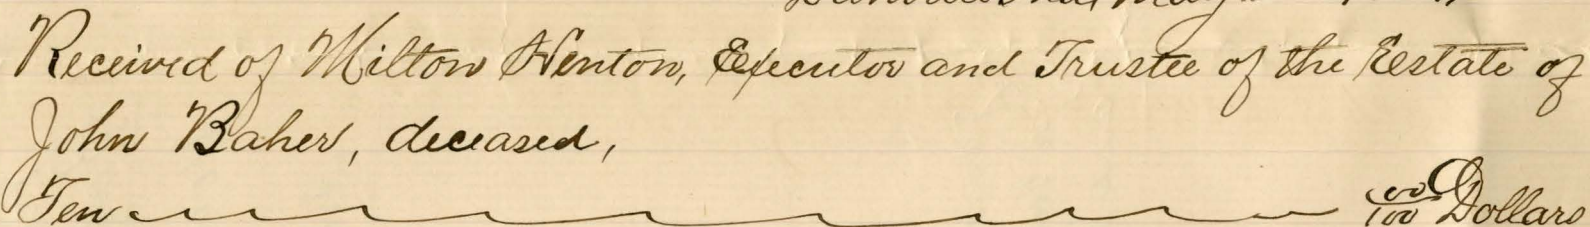 Received of Milton Henton, Executor and Trustee of the Estate of
John Baher, deceased,
Ten 00/100 Dollars